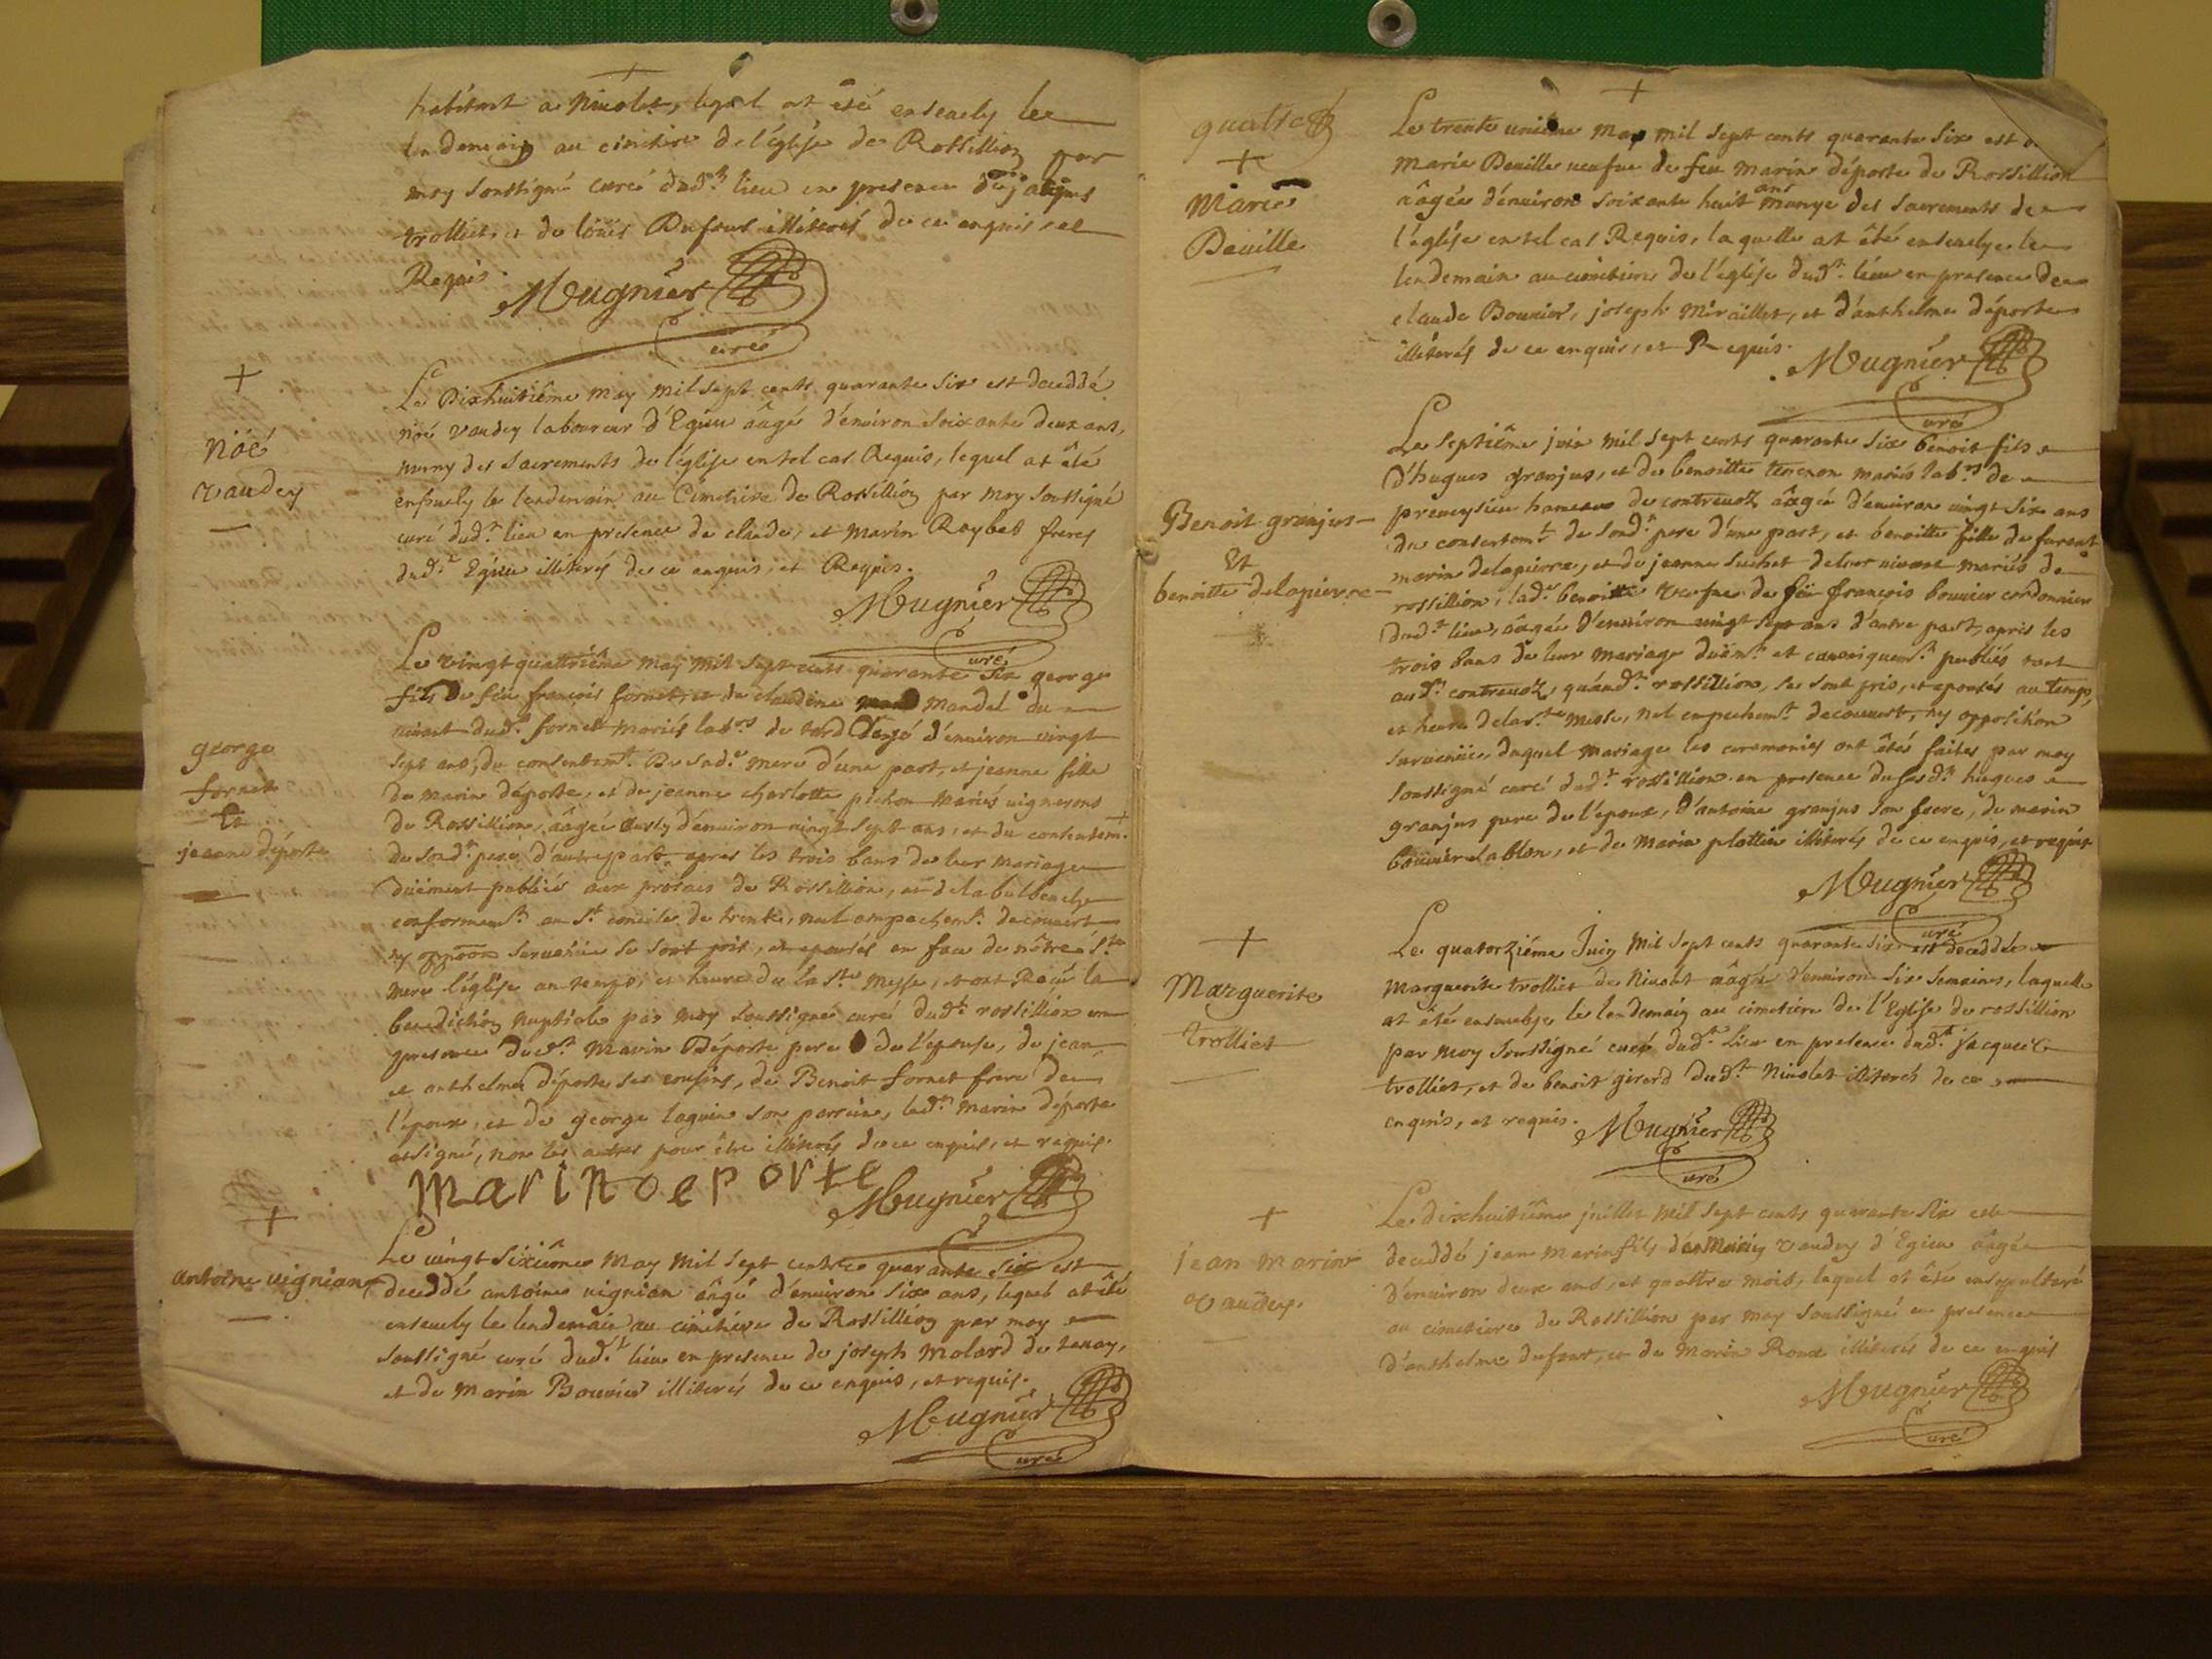 habitant a Nivolet, lequel at été ensevely le
lendemain au cimetiere de l'église de Rossillion par
moy soussigné curé dud.t lieu en presence de jaques
trolliet et de loüis Dufour illiterés de ce enquis et
Requis.
Mugnier
curé
+
Noé
Vaudey
Le Dixhuitiême may mil sept cents quarante six est deceddé
noé Vaudey laboureur d'Egieu âagé d'environ soixante deux ans,
muny des sacrements de l'église en tel cas Requis, lequel at été
ensevely le lendemain au Cimetiere de Rossillion par moy soussigné
curé dud.t lieu en presence de claude, et marin Reybet freres
dud.t Egieu illiterés de ce enquis, et Requis.
Mugnier
curé
george
fornet
Et
jeanne déporte
Le vingt quattriême may mil sept cents quarante six george
fils de feu françois fornet et de claudine mandel du
vivant dud.t fornet mariés lab.rs de âagé d'environ vingt
sept ans, du consentem.t de sad.e mere d'une part, et jeanne fille
de marin déporte, et de jeanne charlotte pichon mariés vignerons
de Rossillion, âagée aussy d'environ vingt sept ans, et du consentem.t
de sond.t pere d'autre part, apres les trois bans de leur mariage
düëment publiés aux prônes de Rossillion, et de la
conformem.t au S.t concile de trente, nul empechem.t decouvert
ny opp̃oon survenüe se sont pris, et epousés en face de nôtre S.te
mere l'église au temps, et heure de la S.te Messe, et ont Reçu la
benediction nuptiale par moy soussigné curé dud.t rossillion en
presence dud.t Marin Déporte pere de l'épouse, de jean,
et anthelme déporte ses cousins, de Benoit fornet frere de
l'époux, et de george laguin son parrain, led.t marin déporte
at signé, non les autres pour être illiterés de ce enquis, et requis.
Marin Deporte
Mugnier
+
antoine vignian
Le vingt sixiême may mil sept cents quarante six est
deceddé antoine vignian âagé d'environ six ans, lequel at été
ensevely le lendemain au cimetiere de Rossillion par moy
soussigné curé dud.t lieu en presence de joseph Molard de tenay,
et de Marin Bouvier illiterés de ce enquis, et requis.
Mugnier
curé
quatre
+
Marie
Deville
Le trente uniême may mil sept cents quarante six est
marie Deville veufve de feu marin déporte de Rossillion
âagée d'environ soixante huit ans munye des sacrements de
l'église en tel cas Requis, laquelle at été ensevelye le
lendemain au cimetiere de l'église dud.t lieu en presence de
claude Bouvier, joseph Miraillet, et d'anthelme déporte
illiterés de ce enquis, et Requis.
Mugnier
curé
Benoit granjus
Et
benoitte delapierre
Le septiême juin mil sept cents quarante six benoit fils
d'hugues granjus, et de benoitte mariés lab.rs de
premeysieu hameau de contrevoz âagé d'environ vingt six ans
du consentem.t de sond.t pere d'une part, et benoitte fille de furent
marin delapierre, et de jeanne suchet de leur vivant mariés de
rossillion, lad.e benoitte veufve de feü françois bouvier cordonnier
dud.t lieu, âagée d'environ vingt sept ans d'autre part, apres les
trois bans de leur mariage düem.t et canoniquem.t publiés tant
aud.t contrevoz, qu'aud.t rossillion, se sont pris, et epousés au temps,
et heure de la S.te messe, nul empechem.t decouvert, ny opposition
survenüe, duquel mariage les ceremonies ont étés faites par moy
soussigné curé dud.t rossillion en presence dusud.t hugues
granjus pere de l'époux, d'antoine granjus son frere, de marin
bouvier et de Marin plottier illiterés de ce enquis, et requis
Mugnier
curé
+
Marguerite
trolliet
Le quatorziéme Juin mil sept cents quarante six est deceddée
Marguerite trolliet de Nivolet âagée d'environ six semaines, laquelle
at été ensevelye le lendemain au cimetiere de l'Eglise de rossillion
par moy soussigné curé dud.t lieu en presence dud.t jacques
trolliet, et de benoit girerd dud.t Nivolet illiterés de ce
enquis, et requis.
Mugnier
curé
+
jean marin
Vaudey.
Le dixhuitiême juillet mil sept cents quarante six est
deceddé jean marin fils de Vaudey d'Egieu âagé
d'environ deux ans, et quattre mois, lequel at été ensepulturé
au cimetiere de Rossillion par moy soussigné en presence
d'anthelme dufour, et de Marin Roux illiterés de ce enquis
Mugnier
curé